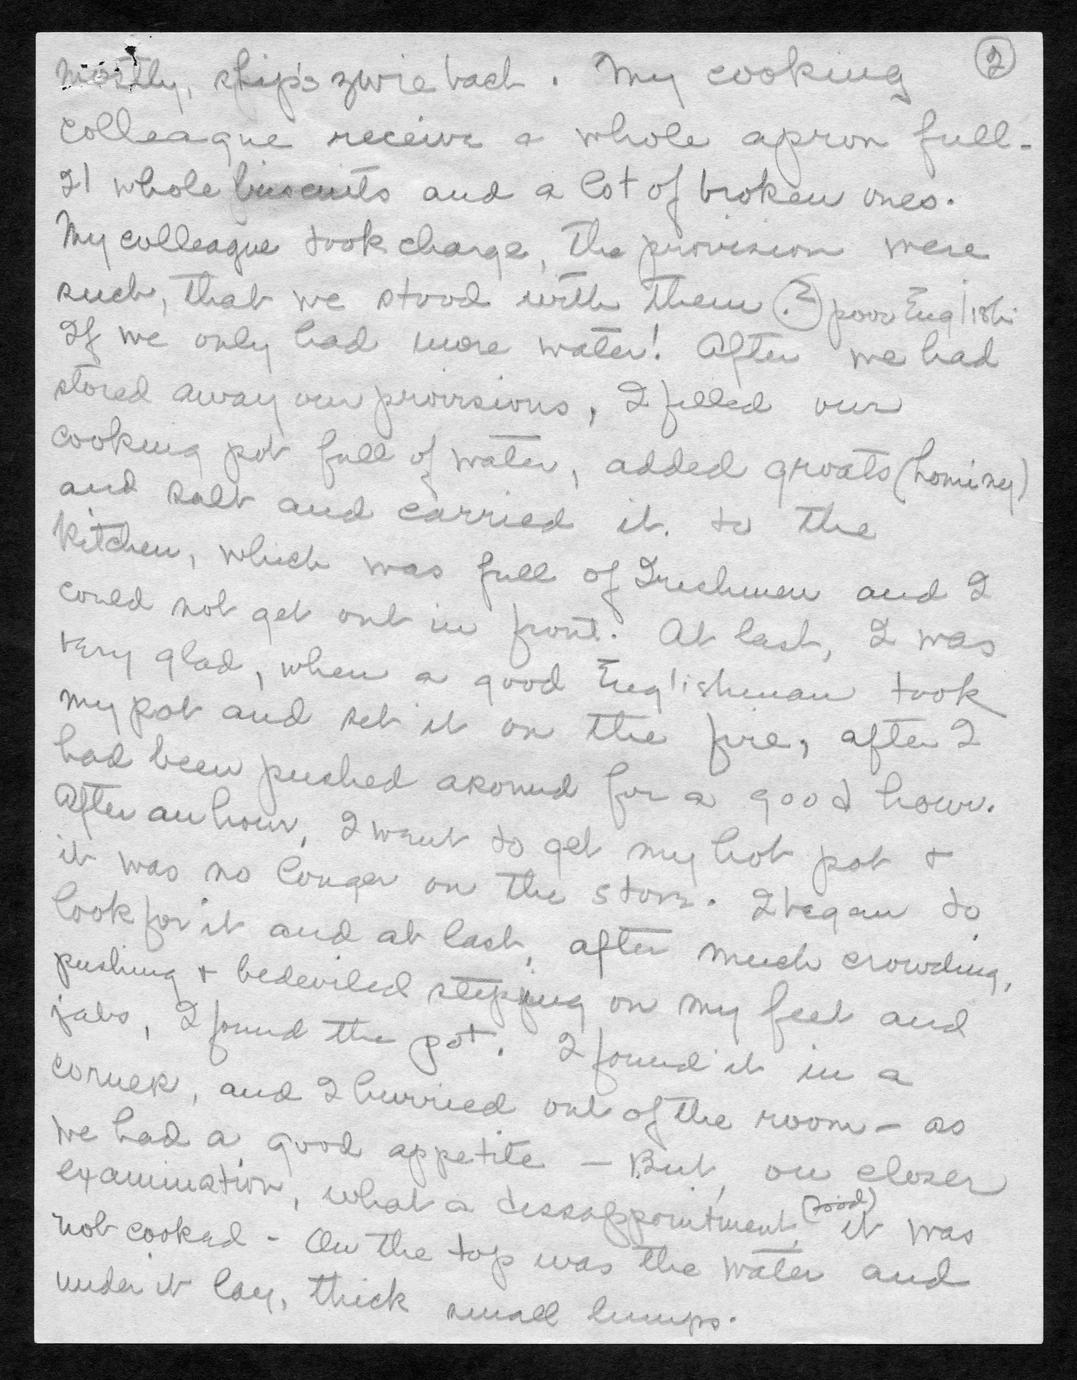 2
Mostly, ship's zwieback. My cooking
colleague receive a whole apron full-
21 whole biscuits and a lot of broken ones.
My colleague took charge, the provision were
such, that we stood with them (?) poor English
If we only had more water! After we had
stored away our provisions, I filled our
cooking pot full of water, added groats (hominy)
and salt and carried it to the
kitchen, which was full of Irishmen and I
could not get out in front. At last, I was
very glad, when a good Englishman took
my pot and set it on the fire, after I
had been pushed around for a good hour.
After an hour, I went to get my hot pot &
it was no longer on the stove. I began to
look for it and at last, after much crowding,
pushing & bedeviled stepping on my feet and
jabs, I found the pot. I found it in a
corner, and I hurried out of the room - as
we had a good appetite - But, on closer
examination, what a dissappointment, it was
not cooked - On the top was the water and
under it lay, thick small lumps.